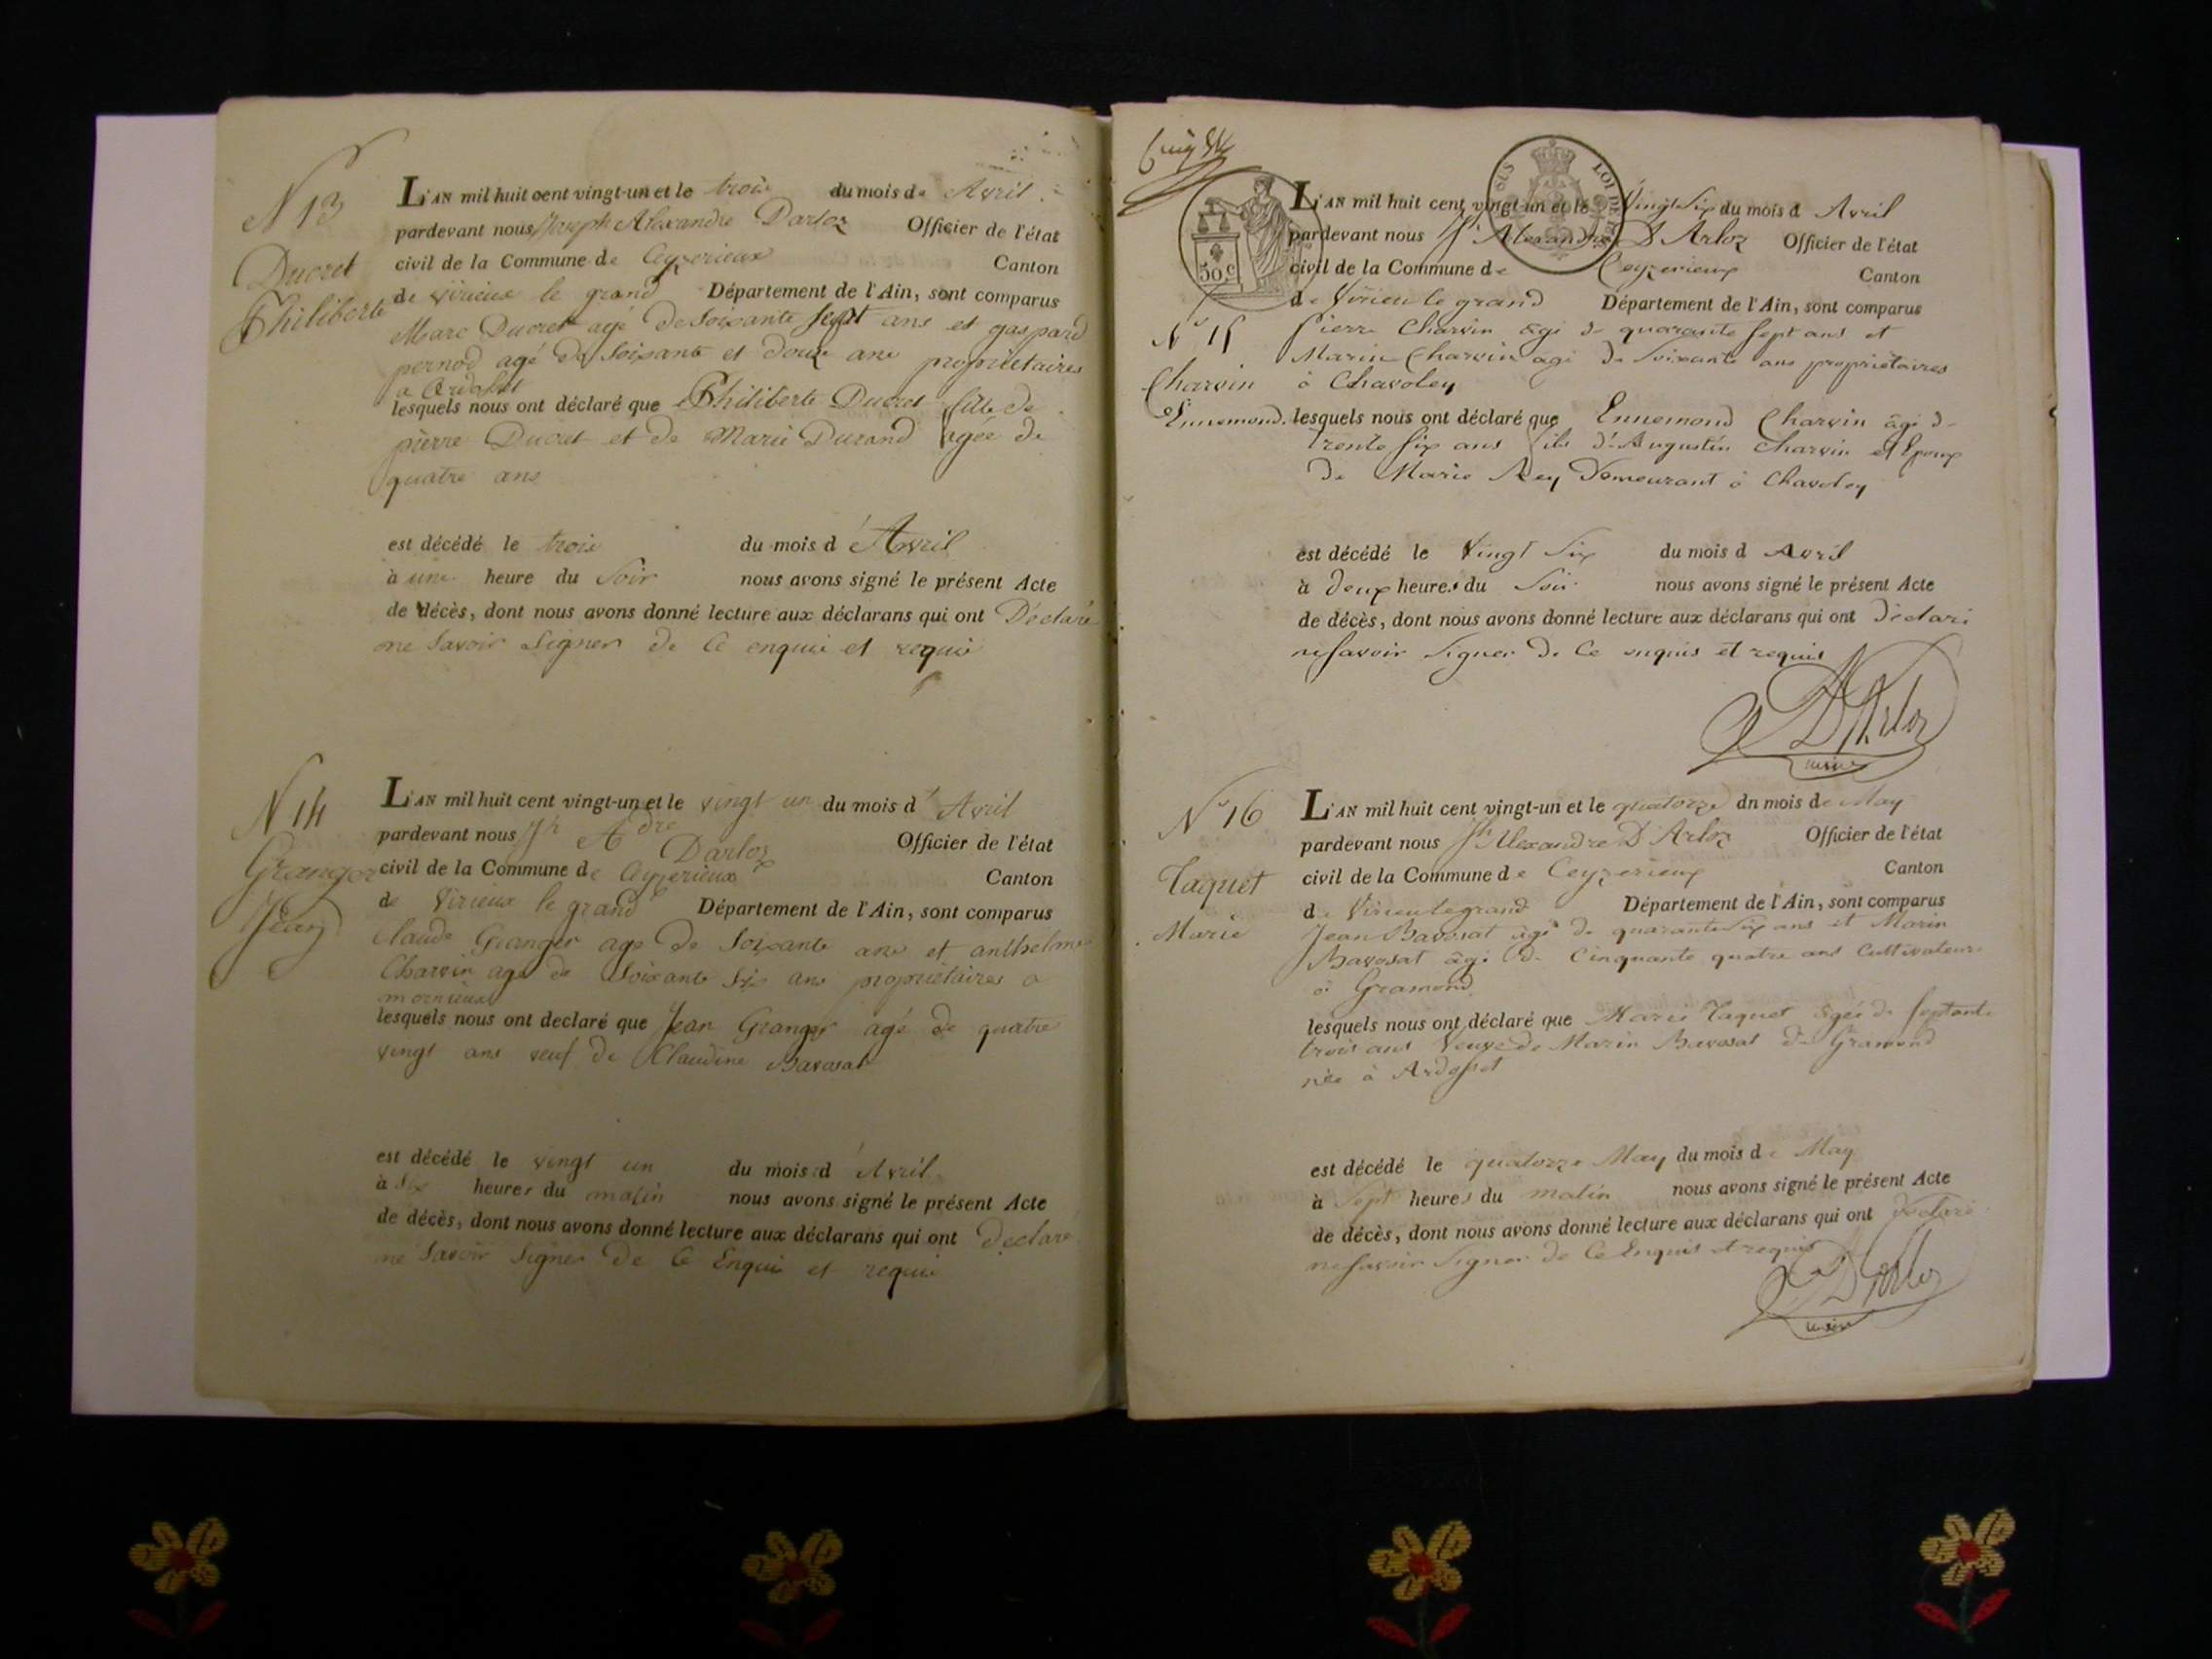 N 13
Ducret
Philiberte
L'AN mil huit cent vingt-un et le trois du mois de Avril
pardevant nous Joseph Alexandre Darloz Officier de l'état
civil de la Commune de Ceyzerieux Canton
de virieux le grand Département de l'Ain, sont comparus
Marc Ducret agé de soixante sept ans et gaspard
pernod agé de soixante et douze ans propriétaires
a Ardosset
lesquels nous ont déclaré que Philiberte Ducret fille de
pierre Ducret et de Marie Durand agée de
quatre ans
est décédé le trois du mois d'Avril
à une heure du soir nous avons signé le présent Acte
de décès, dont nous avons donné lecture aux déclarans qui ont Déclaré
ne savoir signer de ce enquis et requis
N 14
Granger
Jean
L'AN mil huit cent vingt-un et le vingt un du mois d'Avril
pardevant nous Jh Adre Darloz Officier de l'état
civil de la Commune de Ceyzerieux Canton
de Virieux le grand Département de l'Ain, sont comparus
Claude Granger agé de soixante ans et anthelme
Charvin agé de soixante six ans propriétaires a
mornieux
lesquels nous ont declaré que Jean Granger agé de quatre
vingt ans veuf de Claudine Bavosat
est décédé le vingt un du mois d'Avril
à six heures du matin nous avons signé le présent Acte
de décès, dont nous avons donné lecture aux déclarans qui ont déclaré
ne savoir signer de ce Enquis et requis
50 c
LOI DE
L'AN mil huit cent vingt-un et le Vingt Six du mois d Avril
pardevant nous Jh Alexandre D'Arloz Officier de l'état
civil de la Commune de Ceyzerieux Canton
de Virieu le grand Département de l'Ain, sont comparus
N° 15
Charvin
Ennemond.
Pierre Charvin âgé de quarante sept ans et
Marin Charvin âgé de Soixante ans propriétaires
à Chavoley
lesquels nous ont déclaré que Ennemond Charvin âgé de
trente six ans fils d'Augustin Charvin et Epoux
de Marie Rey Demeurant à Chavoley
est décédé le Vingt Six du mois d Avril
à deux heures du Soir nous avons signé le présent Acte
de décès, dont nous avons donné lecture aux déclarans qui ont déclaré
ne savoir signer de Ce enquis et requis
D'Arloz
maire
N° 16
Taquet
Marie
L'AN mil huit cent vingt-un et le quatorze dn mois de May
pardevant nous Jh Alexandre D'Arloz Officier de l'état
civil de la Commune de Ceyzerieux Canton
de Virieu le grand Département de l'Ain, sont comparus
Jean Bavosat âgé de quarante six ans et Marin
Bavosat âgé de Cinquante quatre ans Cultivateurs
à Gramond
lesquels nous ont déclaré que Marie Taquet âgée de septante
trois ans Veuve de Marin Bavosat de Gramond
née à Ardosset
est décédé le quatorze May du mois de May
à Sept heures du matin nous avons signé le présent Acte
de décès, dont nous avons donné lecture aux déclarans qui ont déclaré
ne savoir signer de Ce Enquis et requis
D'Arloz
maire